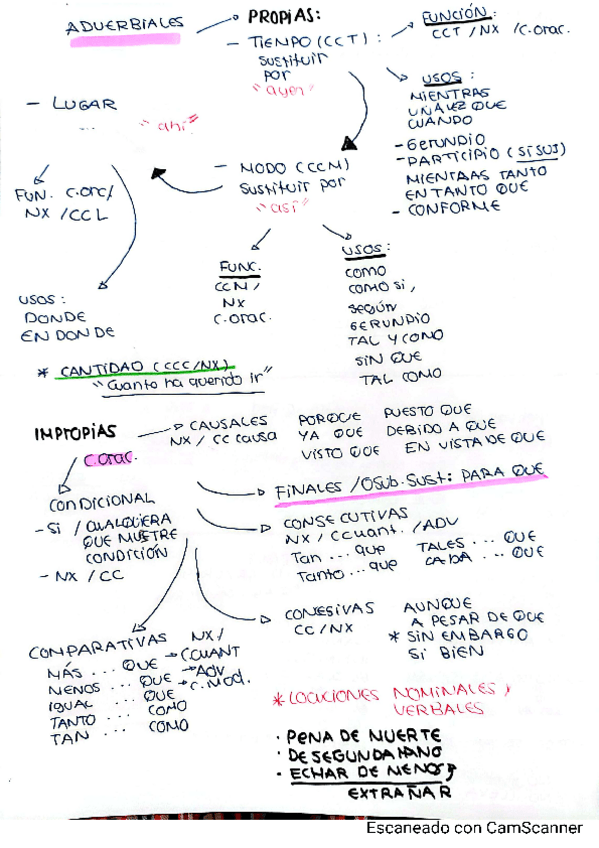 ADVERBIALES
PROPIAS:
- TIEMPO (CCT) :
sustituir
por
"ayer"
FUNCIÓN:
CCT / NX / C.orac.
USOS:
MIENTRAS
UNA VEZ QUE
CUANDO
- GERUNDIO
- PARTICIPIO (SI SUJ)
MIENTRAS TANTO
EN TANTO QUE
- CONFORME
- LUGAR
... "ahí"
FUN. C.orac/
NX / CCL
USOS:
DONDE
EN DONDE
- MODO (CCM)
sustituir por
"así"
FUNC.
CCM /
NX
C.orac.
USOS:
COMO
COMO SI,
según
GERUNDIO
TAL Y COMO
SIN QUE
TAL COMO
* CANTIDAD (CCC/NX)
"Cuanto ha querido ir"
IMPROPIAS
C.orac.
CAUSALES
NX / CC causa
PORQUE PUESTO QUE
YA QUE DEBIDO A QUE
VISTO QUE EN VISTA DE QUE
CONDICIONAL
- Si / CUALQUIERA
QUE MUESTRE
CONDICIÓN
- NX / CC
FINALES / OSub. Sust: PARA QUE
CONSECUTIVAS
NX / CCuant. / ADV
Tan ... que TALES ... QUE
Tanto ... que CADA ... QUE
CONCESIVAS
CC / NX
AUNQUE
A PESAR DE QUE
* SIN EMBARGO
SI BIEN
COMPARATIVAS NX /
MÁS ... QUE C.CUANT
MENOS ... QUE ADV
IGUAL ... QUE C.Mod.
TANTO ... COMO
TAN ... COMO
* LOCUCIONES NOMINALES Y
VERBALES
· PENA DE MUERTE
· DE SEGUNDA MANO
· ECHAR DE MENOS
EXTRAÑAR
Escaneado con CamScanner